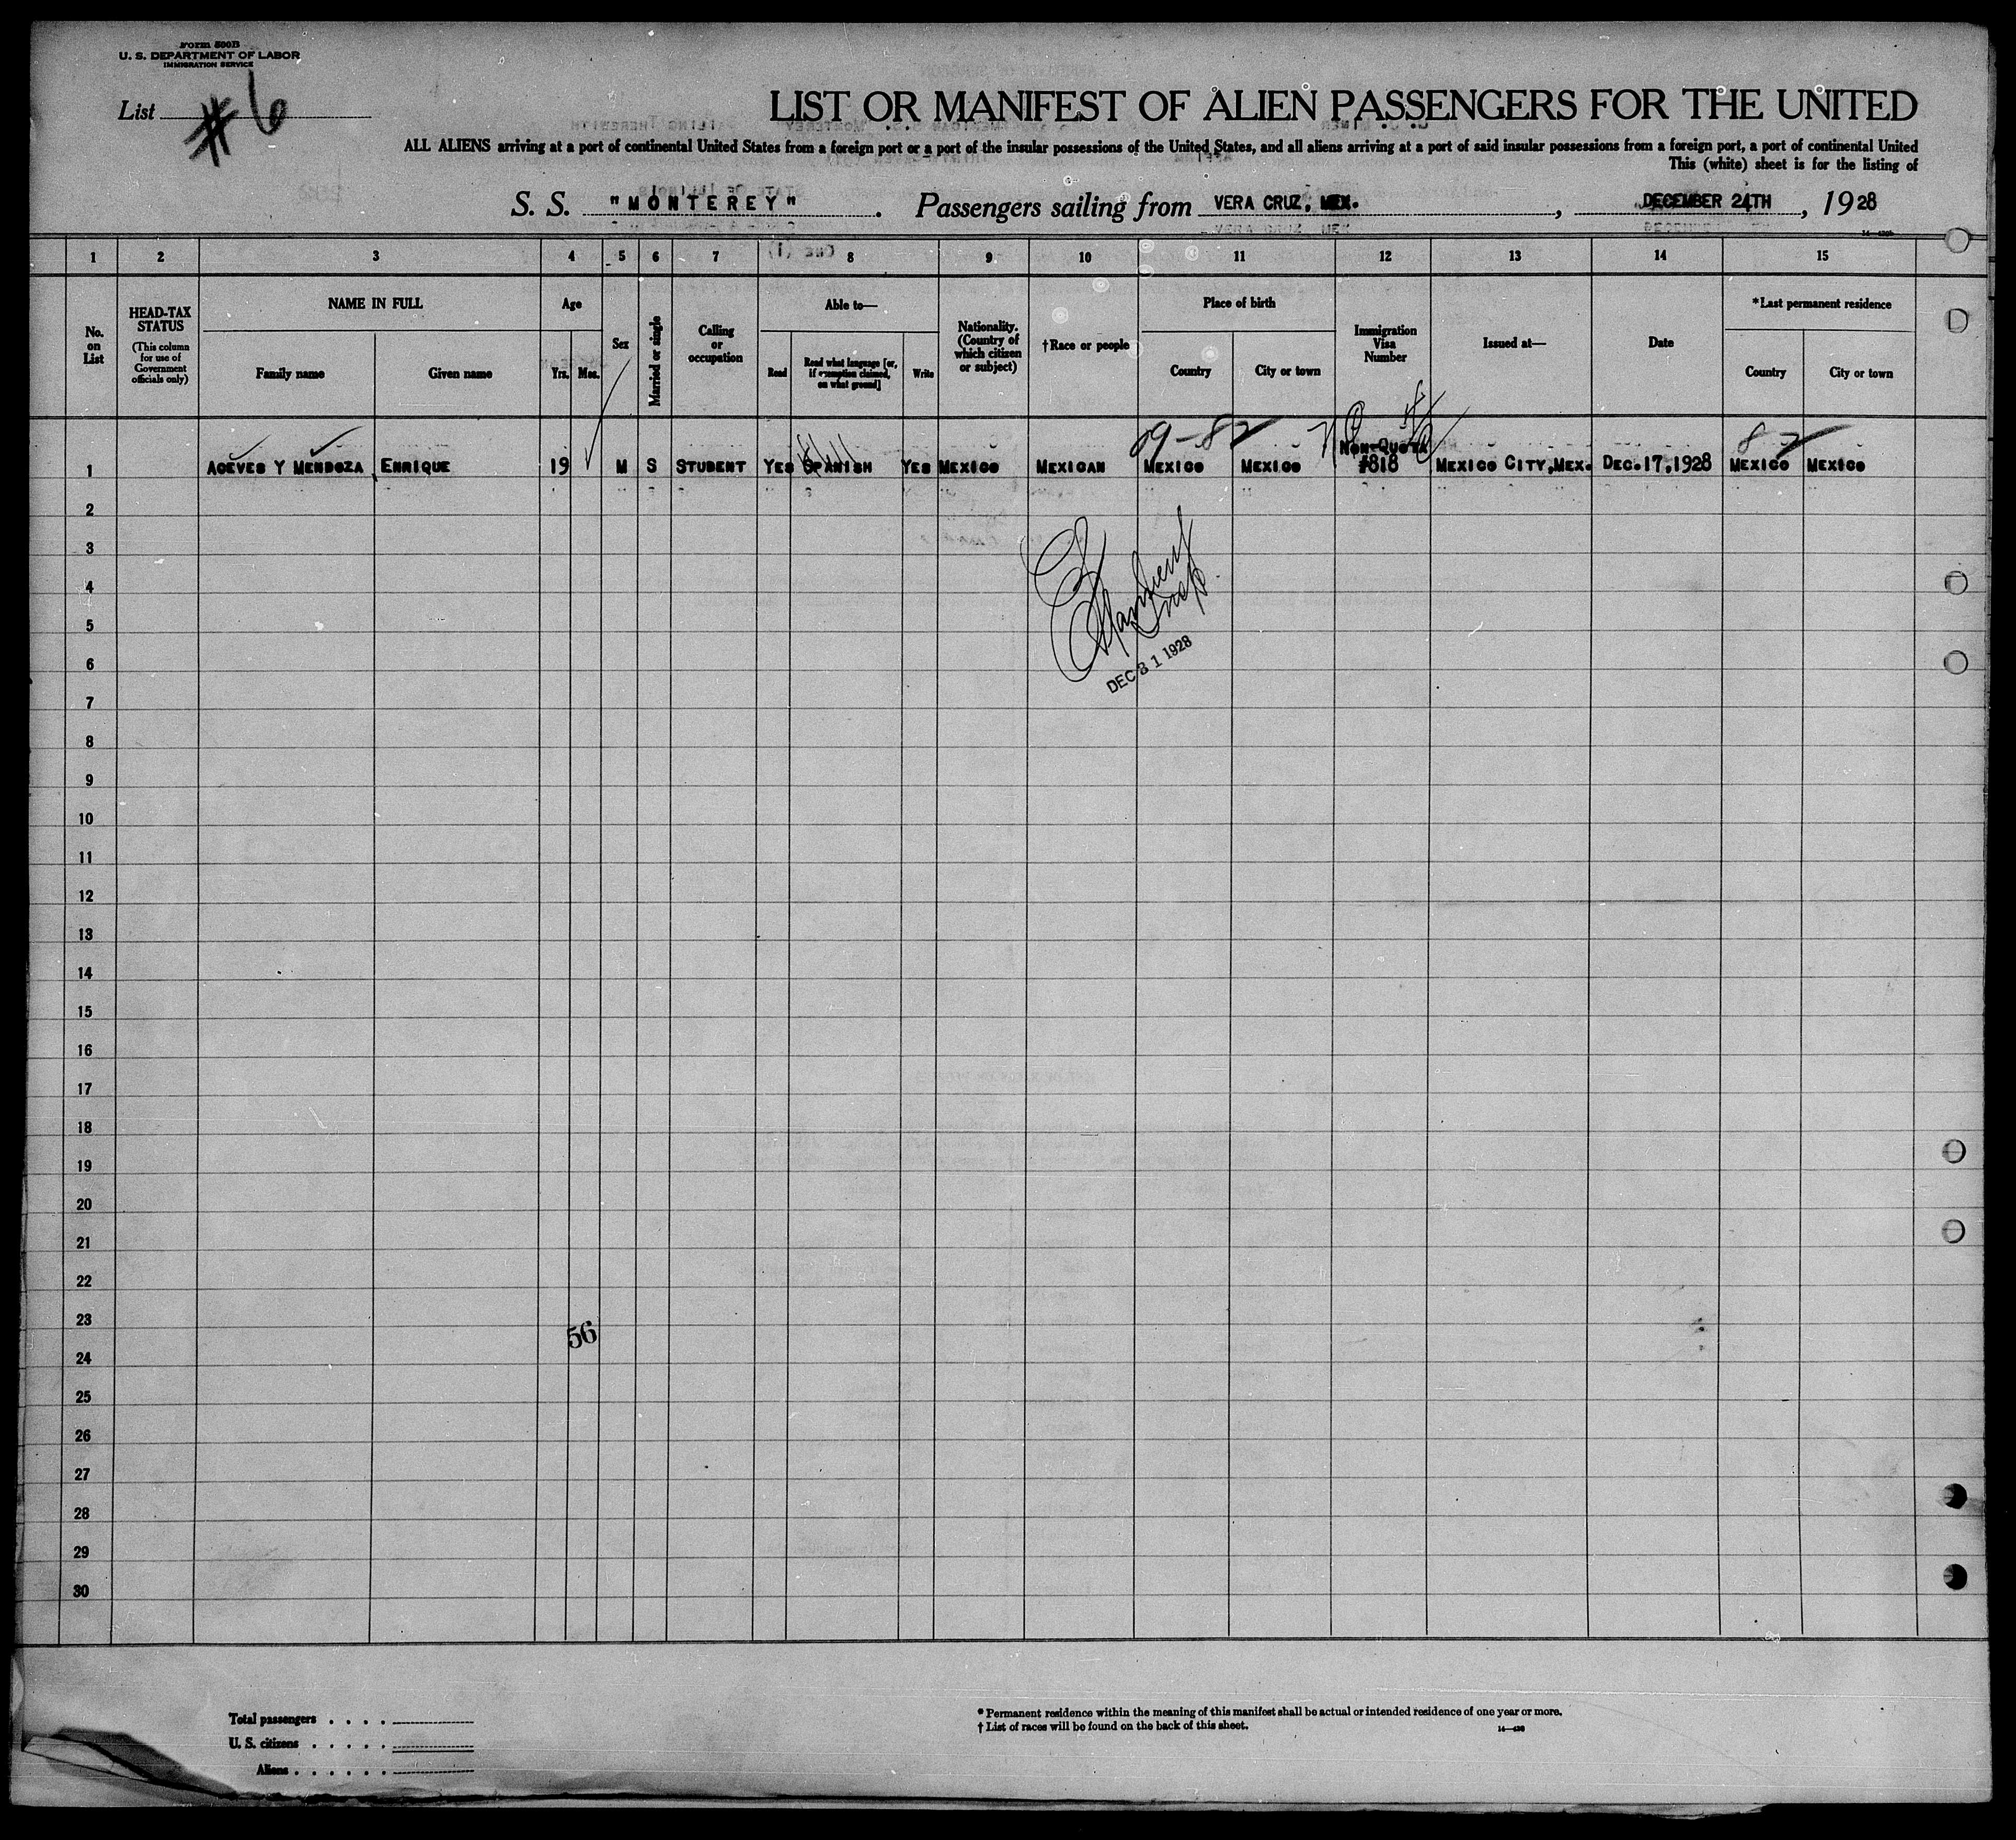 Form 500B
U. S. DEPARTMENT OF LABOR
IMMIGRATION SERVICE
List #6
LIST OR MANIFEST OF ALIEN PASSENGERS FOR THE UNITED
ALL ALIENS arriving at a port of continental United States from a foreign port or a port of the insular possessions of the United States, and all aliens arriving at a port of said insular possessions from a foreign port, a port of continental United
This (white) sheet is for the listing of
S. S. "MONTEREY". Passengers sailing from VERA CRUZ, MEX., DECEMBER 24TH, 1928
1 2 3 4 5 6 7 8 9 10 11 12 13 14 15
No. on List
HEAD-TAX STATUS
(This column for use of Government officials only)
NAME IN FULL
Family name
Given name
Age
Yrs.
Mos.
Sex
Married or single
Calling or occupation
Able to—
Read
Read what language [or, if exemption claimed, on what ground]
Write
Nationality. (Country of which citizen or subject)
†Race or people
Place of birth
Country
City or town
Immigration Visa Number
Issued at—
Date
*Last permanent residence
Country
City or town
09-82
82
NON-QUOTA
1 ACEVES Y MENDOZA ENRIQUE 19 M S STUDENT YES SPANISH YES MEXICO MEXICAN MEXICO MEXICO #818 MEXICO CITY, MEX. DEC. 17, 1928 MEXICO MEXICO
2
3
4
5
6
DEC 31 1928
7
8
9
10
11
12
13
14
15
16
17
18
19
20
21
22
23
56
24
25
26
27
28
29
30
Total passengers . . . .
U. S. citizens . . . . .
Aliens . . . . . .
* Permanent residence within the meaning of this manifest shall be actual or intended residence of one year or more.
† List of races will be found on the back of this sheet.